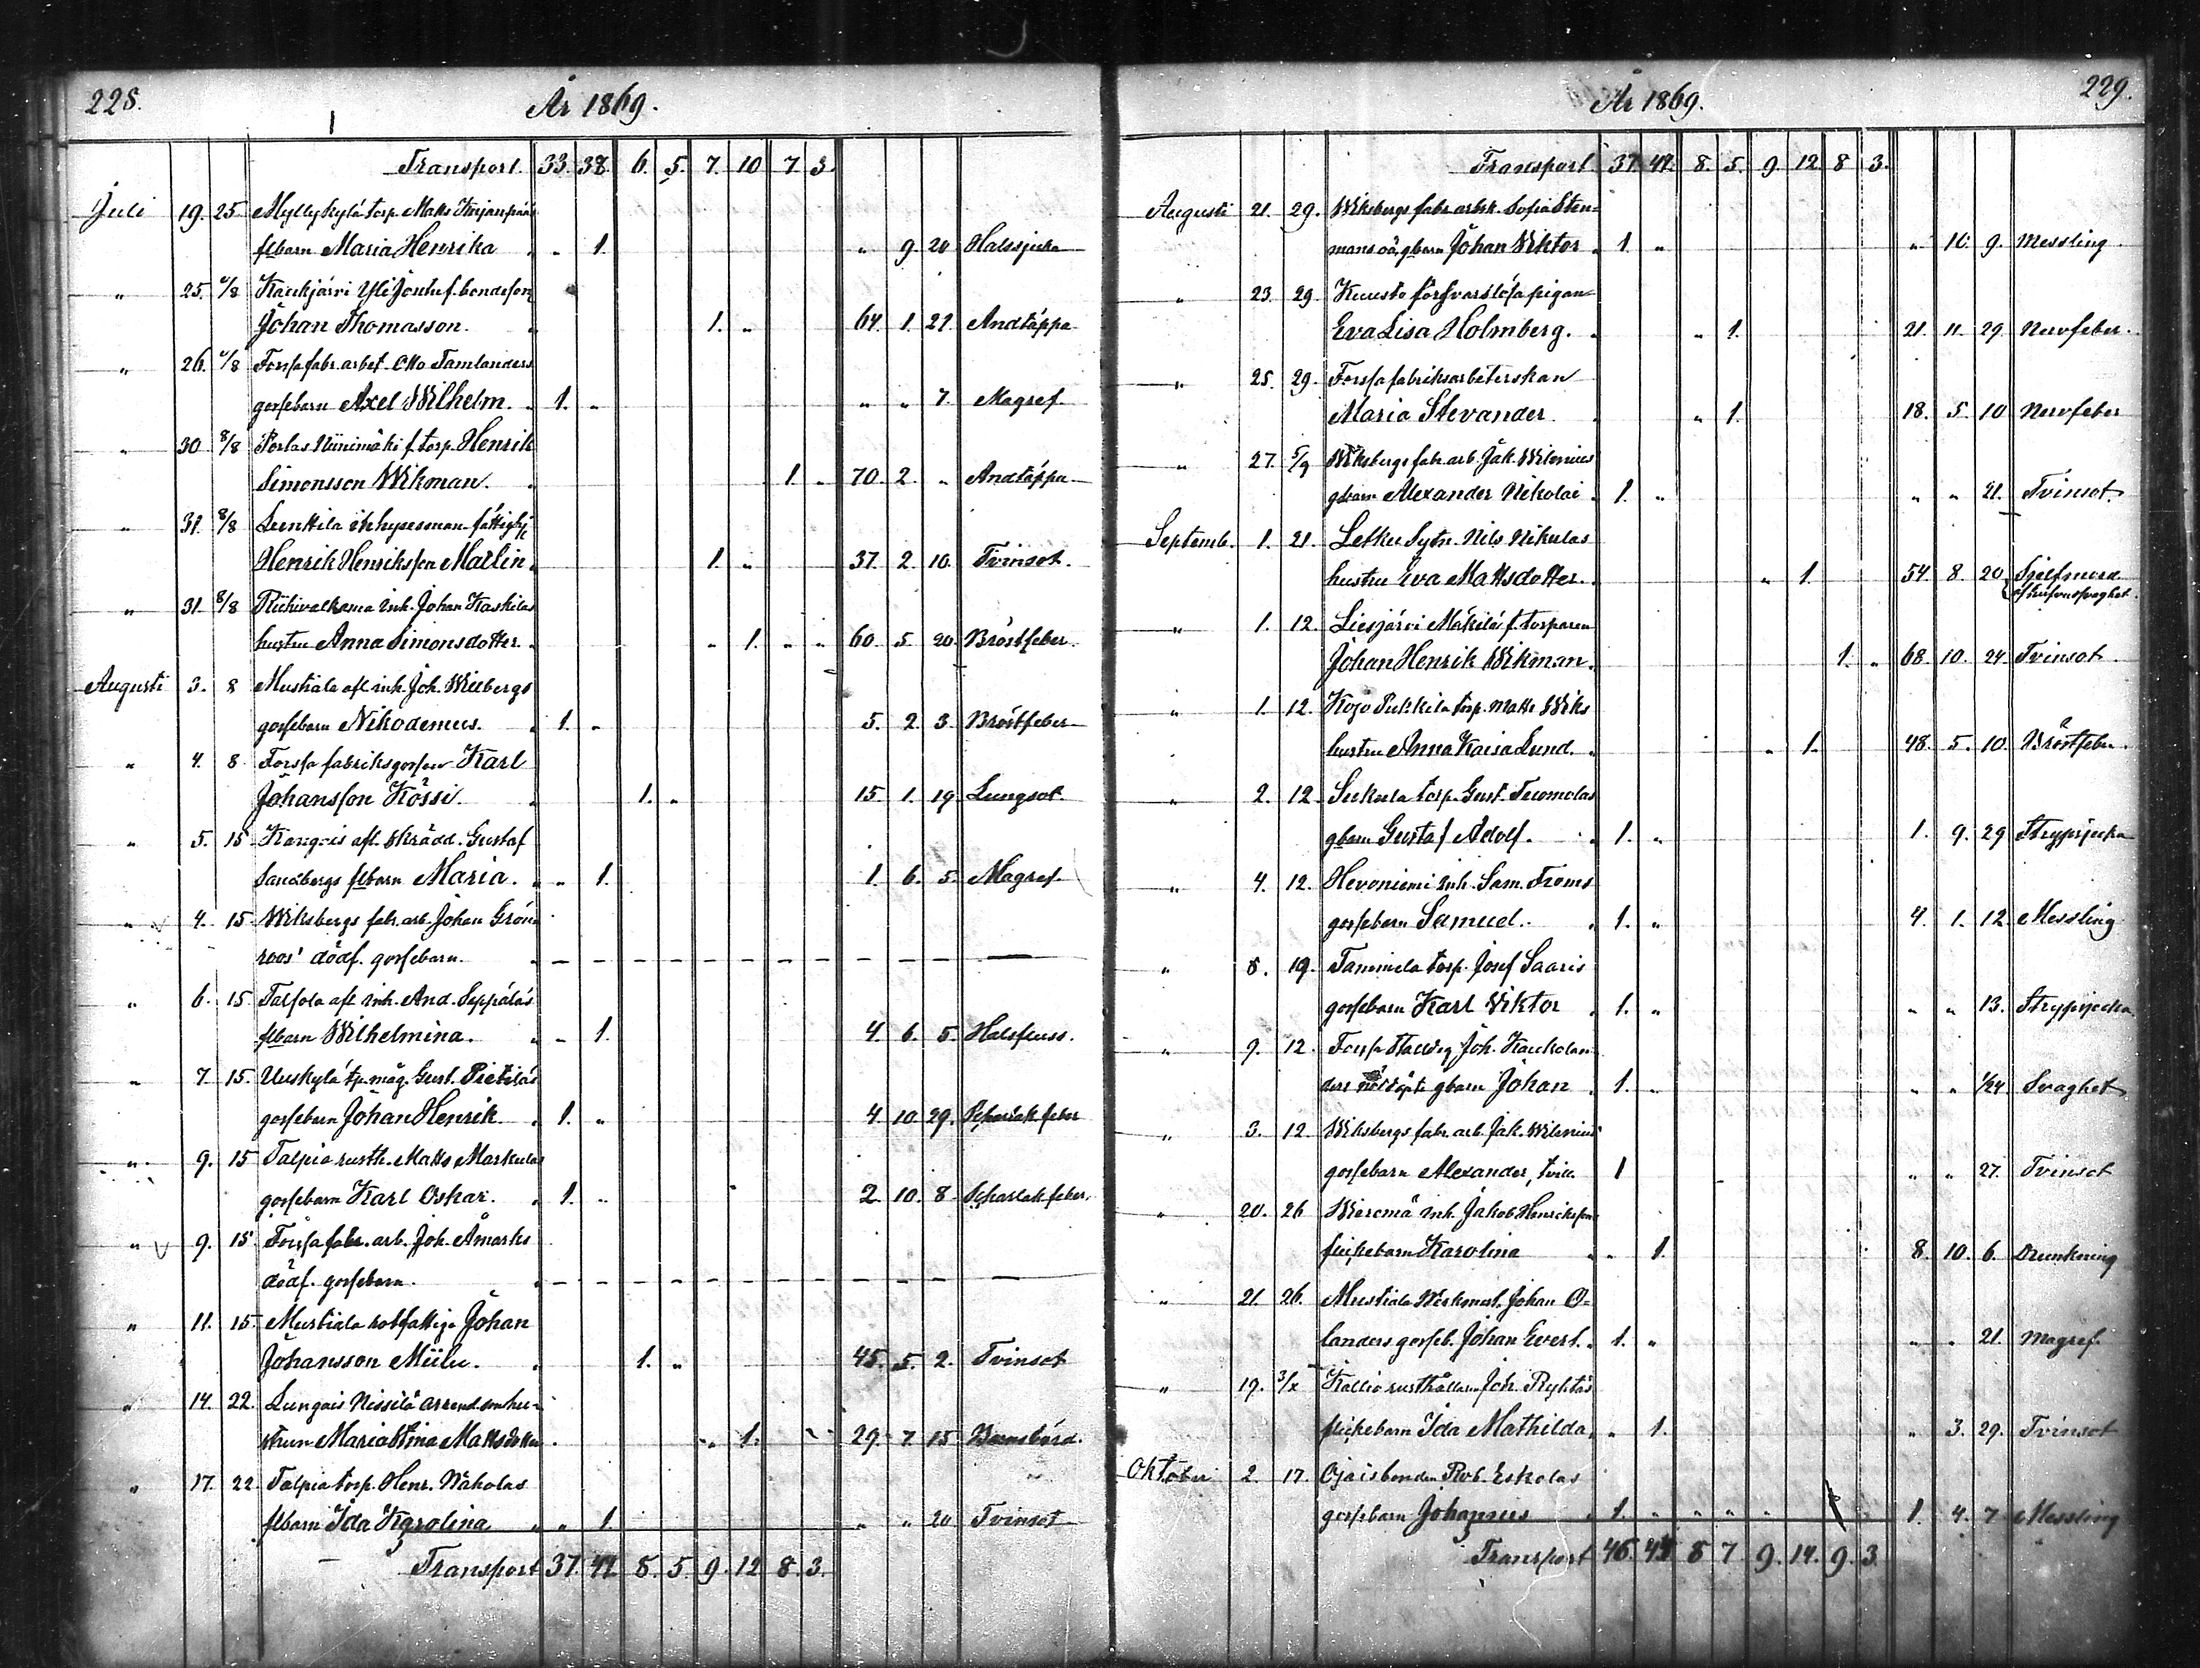 228.
År 1869.
Transport. 33. 38. 6. 5. 7. 10 7. 3.
Juli 19. 25 Myllykylä torp. Matts
flbarn Maria Henrika „ „ 1. „ 9. 20 Halssjuka
„ 25. 1/8 Kaukjärvi f. bondeson
Johan Thomasson. 1. „ 64. 1. 27. Andtäppa
„ 26. 1/8 Forssa fabr. arbet. Otto Tamlanders
gossebarn Axel Wilhelm. 1. „ „ „ 7. Magref.
„ 30 8/8 Porlas Niinimäki f. torp. Henrik
Simonsson Wikman. 1. „ 70. 2. „ Andtäppa
„ 31. 8/8 Lunttila inhysesman
Henrik Henriksson Mallin. 1. „ 37. 2. 10. Tvinsot.
„ 31. 8/8 Riihivalkama inh. Johan Kaskilas
hustru Anna Simonsdotter. „ 1. „ „ 60. 5. 20. Bröstfeber.
Augusti 3. 8 Mustiala afl. inh. Joh. Willbergs
gossebarn Nikodemus. 1. „ 5. 2. 3. Bröstfeber
„ 4. 8. Forssa fabriksgossen Karl
Johansson Kössi. 1. „ 15. 1. 19. Lungsot.
„ 5. 15 Kangais afl. skrädd. Gustaf
Sandbergs flbarn Maria. „ „ 1. 1. 6. 5. Magref.
„ 4. 15. Wiksbergs fabr. arb. Johan Grön=
roos' dödf. gossebarn.
„ 6. 15. Talsola afl. inh. And. Seppäläs
flbarn Wilhelmina. „ „ 1. 4. 6. 5. Halsfluss.
„ 7. 15. Uuskylä tp. måg. Gust. Pietiläs
gossebarn Johan Henrik. 1. „ 4. 10. 29. Scharlakfeber
„ 9. 15 Talpia rusth. Matts Markulas
gossebarn Karl Oskar. 1. „ 2. 10. 8. Scharlakfeber.
„ 9. 15. Forssa fabr. arb. Joh. Åmarks
dödf. gossebarn.
„ 11. 15. Mustiala rotfattige Johan
Johansson Miilu. 1. „ 45. 5. 2. Tvinsot
„ 14. 22. Lungais Nissilä arrend. sonhu=
strun Maria Stina Mattsdotter „ 1. 29. 7. 15 Barnsbörd.
„ 17. 22. Talpia torp. Henr. Näholas
flbarn Ida Karolina „ „ 1. „ „ 20 Tvinsot
Transport 37. 42. 8. 5. 9. 12 8. 3.
229.
År 1869.
Transport. 37. 42. 8. 5. 9. 12. 8 3.
Augusti 21. 29. Wiksbergs fabr. arbsk. Sofia Sten=
mans oä. gbarn Johan Viktor 1. „ „ 10. 9. Messling.
„ 23. 29. Kuusto försvarslösa pigan
Eva Lisa Holmberg. „ 1. 21. 11. 29. Nervfeber.
„ 25. 29. Forssa fabriksarbeterskan
Maria Stevander. „ 1. 18. 5. 10 Nervfeber
„ 27. 5/9 Wiksbergs fabr. arb. Jak. Wilenius
gbarn Alexander Nikolai 1. „ „ „ 21. Tvinsot.
Septemb. 1. 21. Letku Sytn. Nils Nikulas
hustru Eva Mattsdotter. „ 1. 54. 8. 20. Sjelfmord
af hufvudsvaghet.
„ 1. 12. Liesjärvi Mäkilä f. torparen
Johan Henrik Wikman. 1. „ 68. 10. 24. Tvinsot.
„ 1. 12. Kojo Pukkila torp. Matts Wiks
hustru Anna Kaisa Lund. „ 1. 48. 5. 10. Bröstfeber.
„ 2. 12. Sukula torp. Gust. Tuomolas
gbarn Gustaf Adolf. 1. „ 1. 9. 29 Strypsjuka
„ 4. 12. Hevoniemi inh. Sam. Froms
gossebarn Samuel. 1. „ 4. 1. 12. Messling
„ 8. 19. Tammela torp. Josef Saaris
gossebarn Karl Viktor 1. „ „ „ 13. Strypsjuka
„ 9. 12. Forssa Joh. Kaukolan=
ders nöddöpte gbarn Johan 1. „ „ „ 1/24 Svaghet.
„ 3. 12. Wiksbergs fabr. arb. Jak. Wilenius
gossebarn Alexander, tvill. 1 „ „ 27. Tvinsot
„ 20. 26 Wieremä inh. Jakob Henrikssons
flickebarn Karolina „ 1. 8. 10. 6. Drunkning
„ 21. 26. Mustiala Werkmest. Johan O=
landers gosseb. Johan Evert. 1. „ „ „ 21. Magref.
„ 19. 3/X Kallio rusthållaren Joh. Ryhtäs
flickebarn Ida Mathilda „ 1. „ 3. 29. Tvinsot
Oktober 2. 17. Ojais bonden Rob. Eskolas
gossebarn Johannes 1. „ „ „ „ „ 1. 4. 7. Messling
Transport 46. 44 8 7. 9. 14. 9. 3.